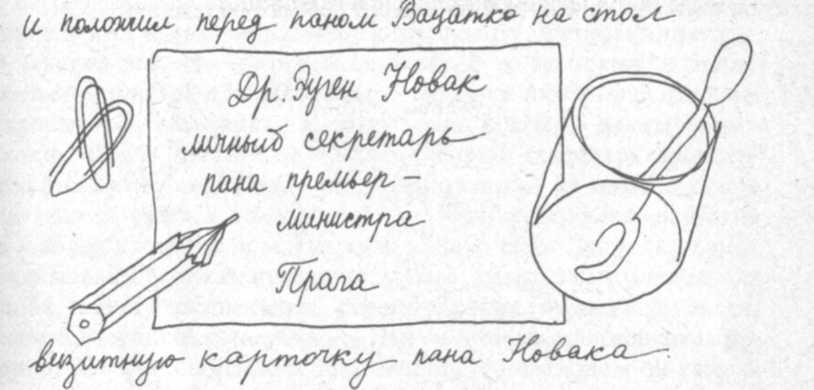 и положил перед паном Вацатко на стол
Др. Эуген Новак
личный секретарь
пана премьер-
министра
Прага
визитную карточку пана Новака